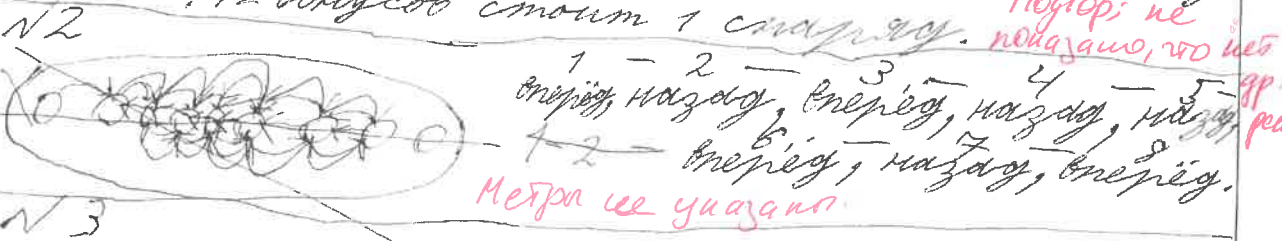 стоит 1 снаряд.
Подбор; не
показано, что нет
др.
N2
1 – 2 – 3 – 4 – 5
вперёд, назад, вперёд, назад, назад,
1 – 2 – 6 – 7 – 8
вперёд, назад, вперёд.
Метры не указаны
N3